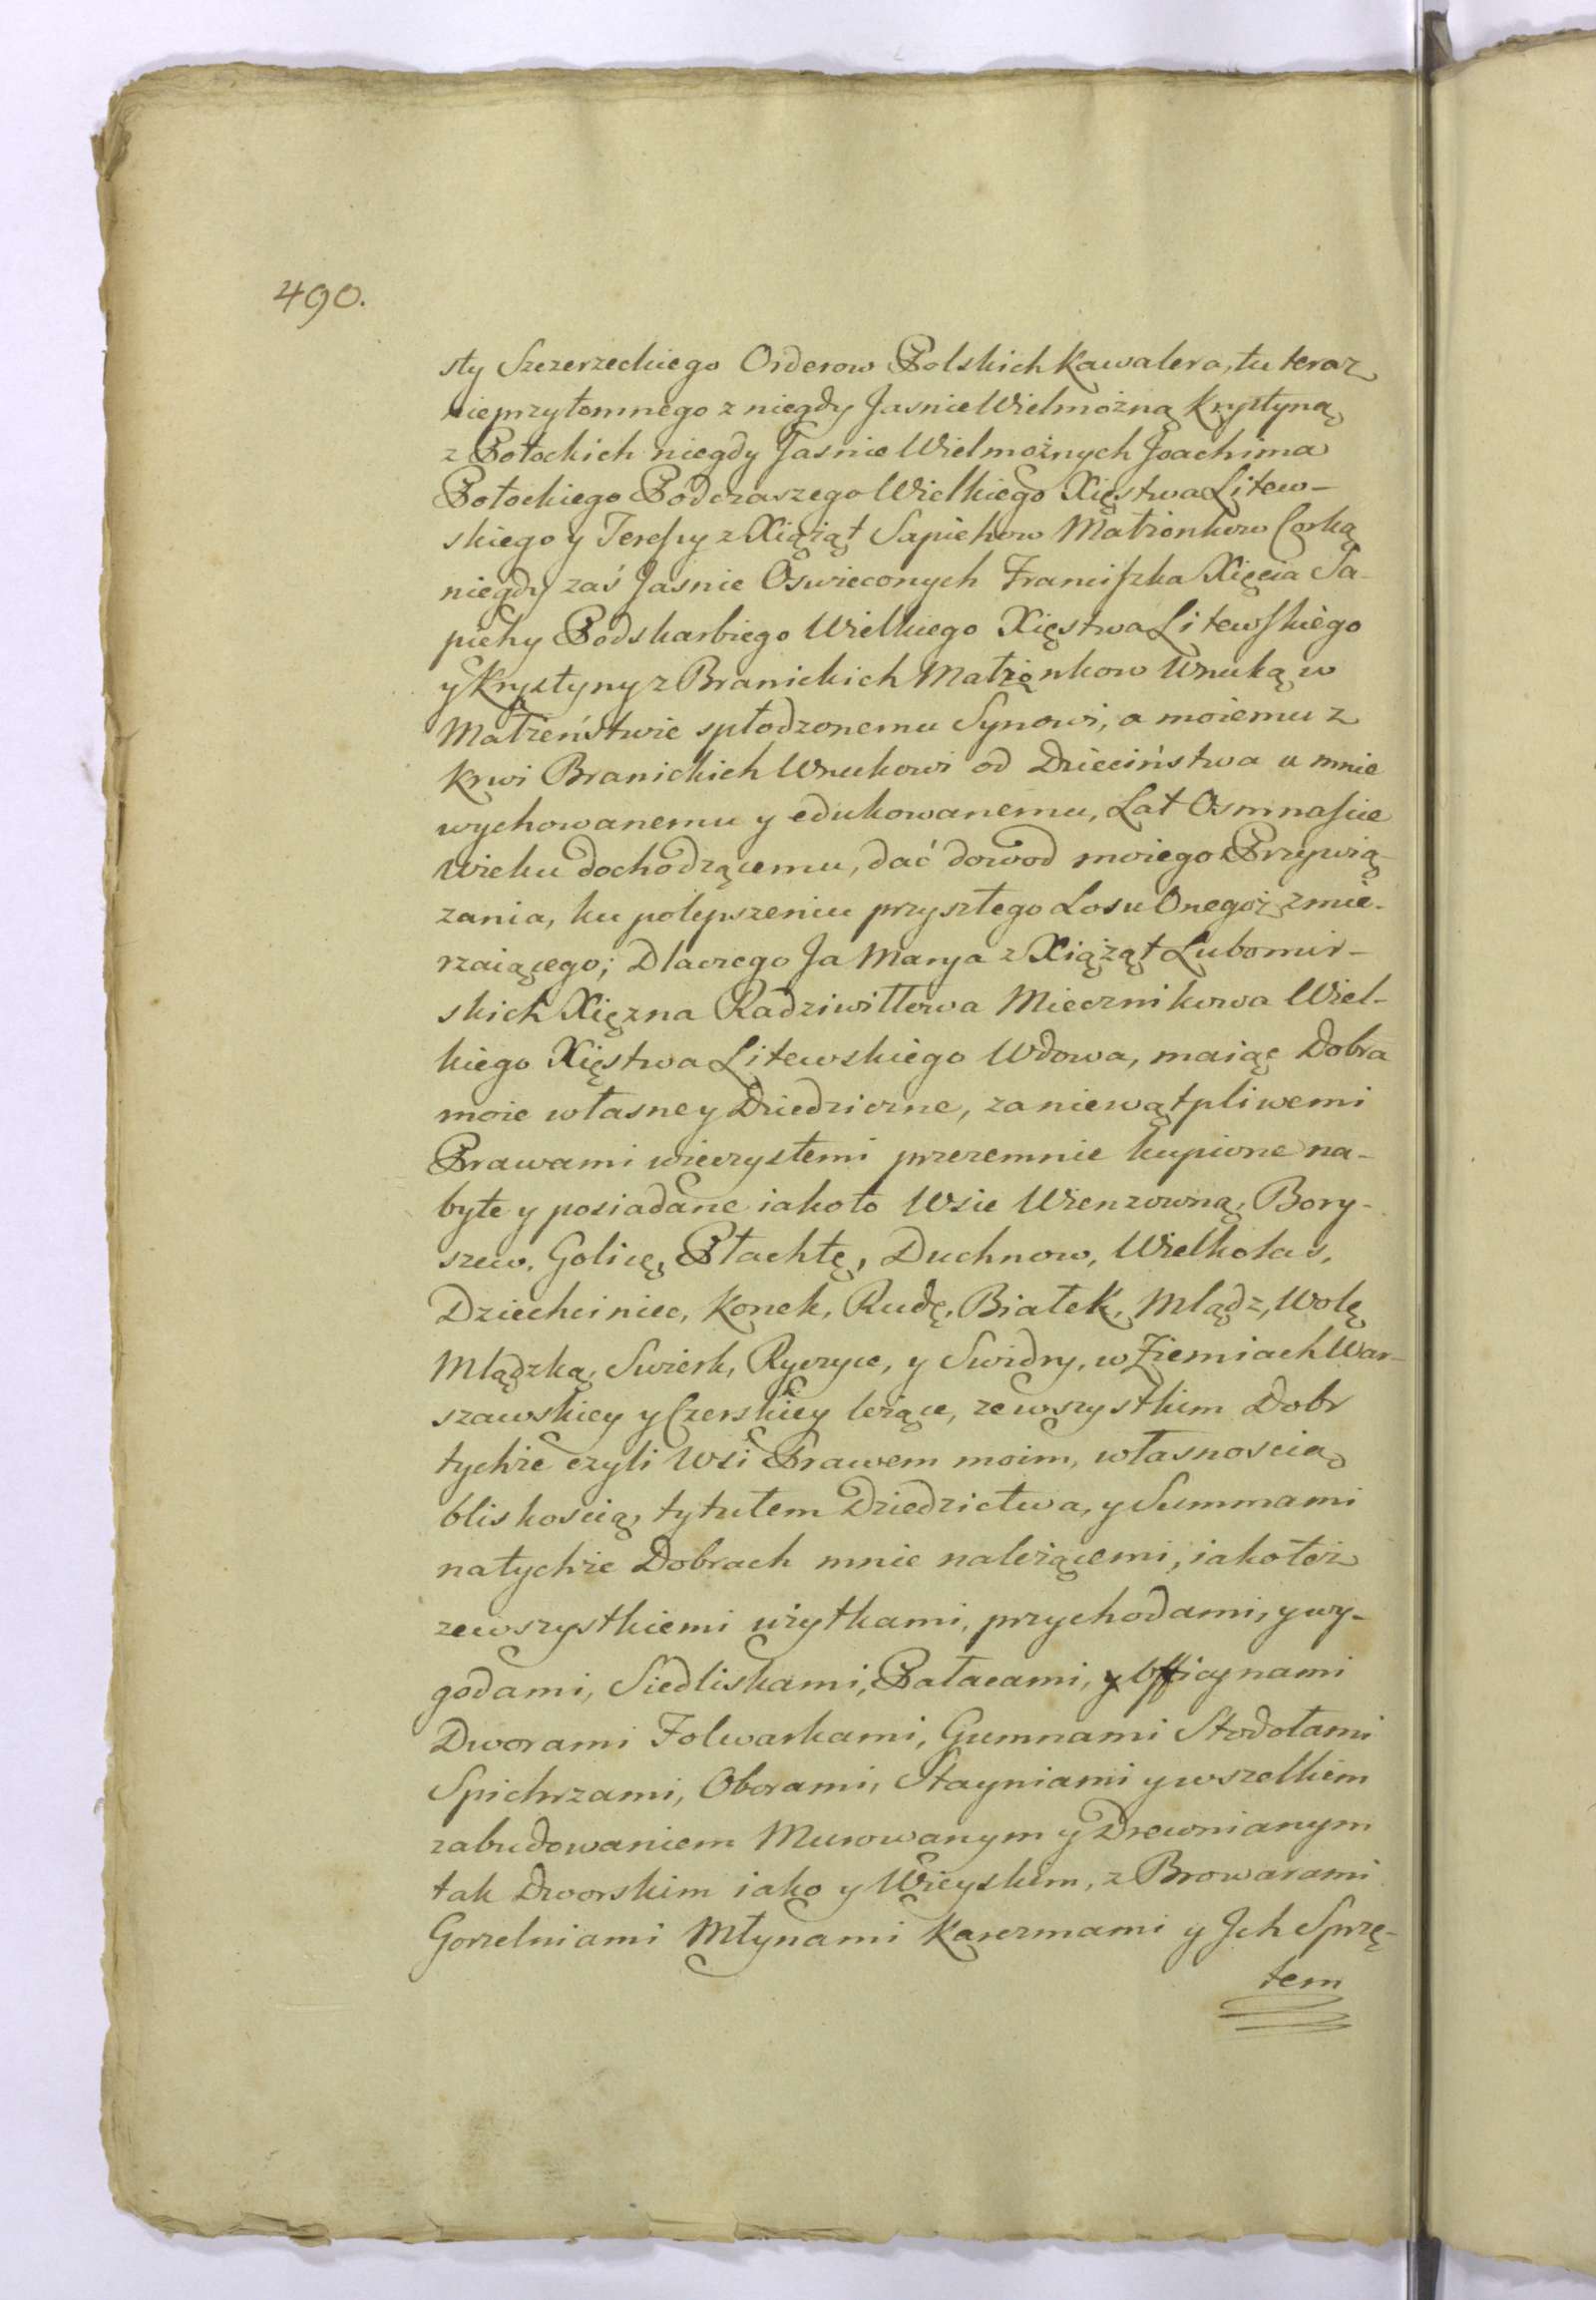 490.
sty Szczerzeckiego Orderow Polskich Kawalera, tu teraz
nieprzytomnego z niegdy Jasnie Wielmożną Krystyną
z Potockich niegdy Jasnie Wielmożnych Joachima
Potockiego Podczaszego Wielkiego Xięstwa Litew-
skiego y Teressy z Xiążąt Sapiehow Małżonkow Corką
niegdy zaś Jasnie Oswieconych Franciszka Xięcia Sa-
piehy Podskarbiego Wielkiego Xięstwa Litewskiego
y Krystyny z Branickich Małżonkow Wnuką w
Małżeństwie spłodzonemu Synowi, a moiemu z
Krwi Branickich Wnukowi od Dzieciństwa u mnie
wychowanemu y edukowanemu, Lat Osmnaście
Wieku dochodzącemu, dać dowod moiego Przywią-
zania, ku polepszeniu przyszłego Losu Onegoż zmie-
rzaiącego; Dlaczego Ja Marya z Xiążąt Lubomir-
skich Xięzna Radziwiłłowa Miecznikowa Wiel-
kiego Xięstwa Litewskiego Wdowa, maiąc Dobra
moie własne y Dziedziczne, za niewątpliwemi
Prawami wieczystemi przezemnie kupione na-
byte y posiadane iako to Wsie Wienzowną, Bory-
szew, Golicę, Płachtę, Duchnow, Wielkolas,
Dziechciniec, Konek, Rudę, Białek, Mlądz, Wolę
Mlądzką, Swierk, Ryczyce, y Swidry, w Ziemiach War-
szawskiey y Czerskiey leżące, ze wszystkim Dobr
tychże czyli Wsi Prawem moim, własnoscią
bliskoscią, tytułem Dziedzictwa, y Summami
na tychże Dobrach mnie należącemi, iako też
ze wszystkiemi użytkami, przychodami, y wy-
godami, Siedliskami, Pałacami, y Officynami
Dworami Folwarkami, Gumnami Stodołami
Spichrzami, Oborami, Stayniami y wszelkiem
zabudowaniem Murowanym y Drewnianym
tak Dworskim iako y Wieyskim, z Browarami
Gorzelniami Młynami Karczmami y Jch Sprzę-
tem